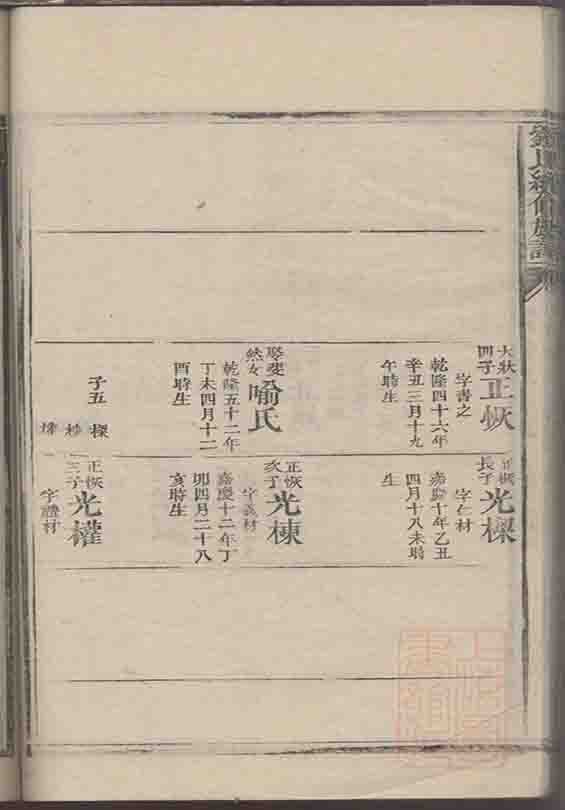 大狀四子正恢
字書之
乾隆四十六年
辛丑三月十九
午時生
娶斐然女喻氏
乾隆五十二年
丁未四月十二
酉時生
子五 樑
正恢長子光樑
字仁材
嘉慶十年乙丑
四月十八未時
生
正恢次子光棟
字義材
嘉慶十二年丁
卯四月二十八
亥時生
正恢三子光權
字禮材